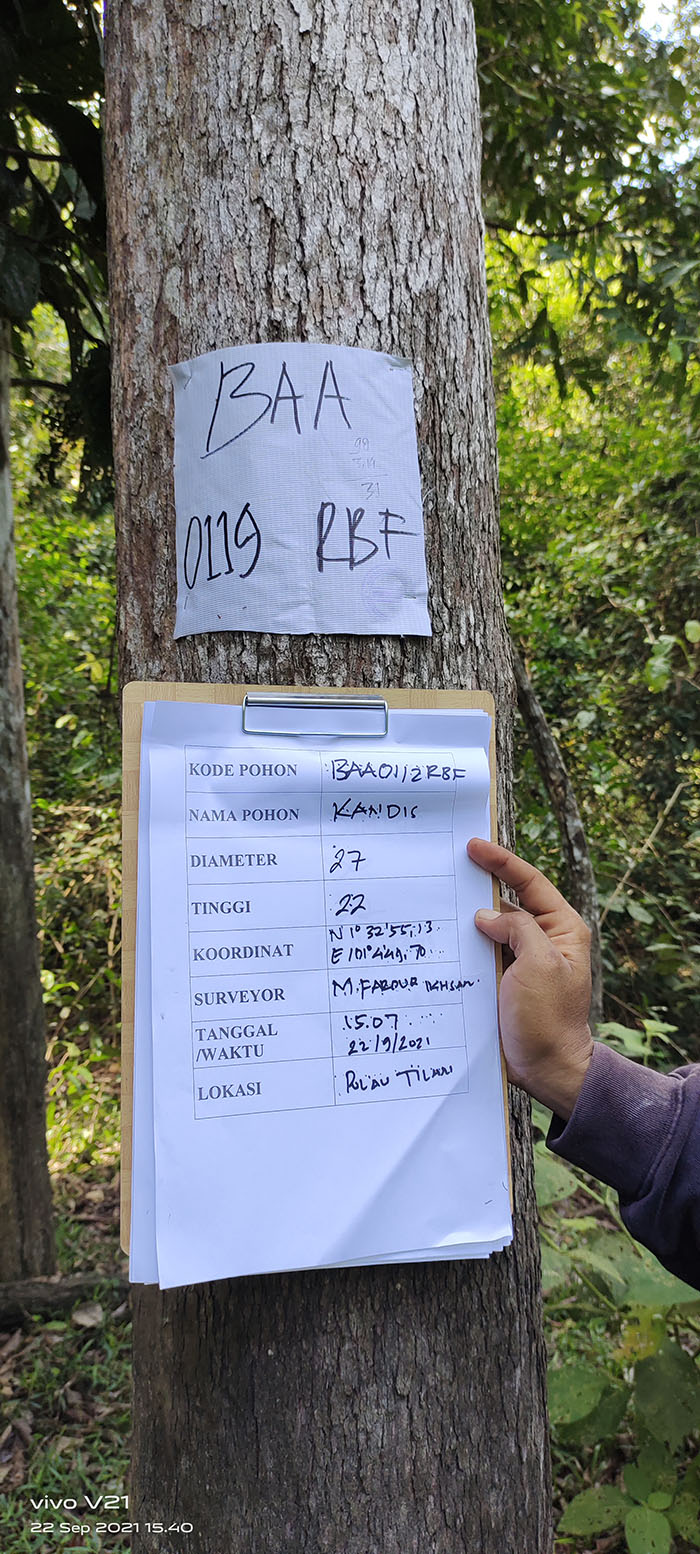 BAA
99
3,14
31
0119 RBF
KODE POHON BAA0112RBF
NAMA POHON KANDIS
DIAMETER 27
TINGGI 22
KOORDINAT N 1° 32' 55,13
E 101° 4'49, 70
SURVEYOR M. IKHSAN
TANGGAL /WAKTU 15.07
22/9/2021
LOKASI PULAU TILAN
vivo V21
22 Sep 2021 15.40